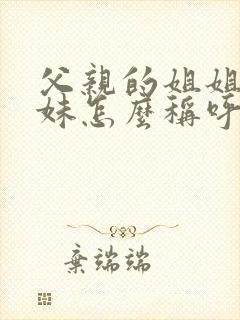 父親的姐姐
妹怎麼稱呼
棄端端